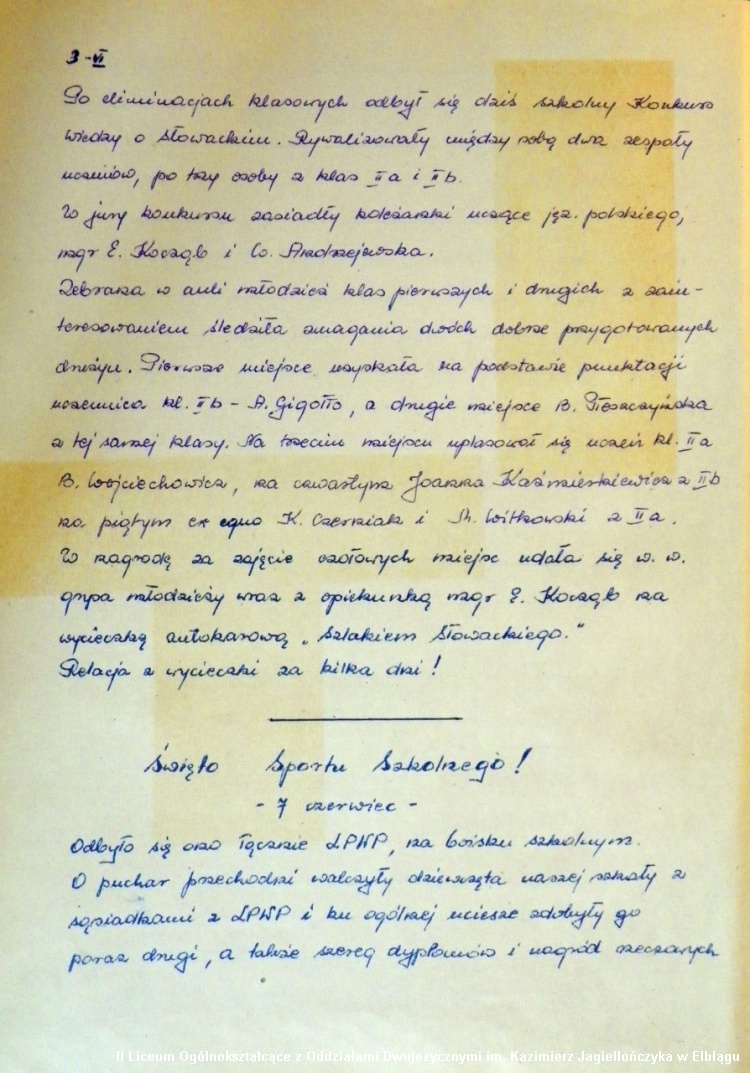 3-VI
Po eliminacjach klasowych odbył się dziś szkolny Konkurs
wiedzy o Słowackim. Rywalizowały między sobą dwa zespoły
uczniów, po trzy osoby z klas IIa i IIb.
W jury konkursu zasiadły koleżanki uczące jęz. polskiego,
mgr E. Kociąb i W. Andrzejewska.
Zebrana w auli młodzież klas pierwszych i drugich z zain-
teresowaniem śledziła zmagania dwóch dobrze przygotowanych
drużyn. Pierwsze miejsce uzyskała na podstawie punktacji
uczennica kl. IIb - A. Gigołło, a drugie miejsce B. Pieszczyńska
z tej samej klasy. Na trzecim miejscu uplasował się uczeń kl. IIa
B. Wojciechowicz, na czwartym Joanna Kaźmierkiewicz z IIb
na piątym ex equo K. Czerniak i M. Witkowski z IIa.
W nagrodę za zajęcie czołowych miejsc udała się w. w.
grupa młodzieży wraz z opiekunką mgr E. Kociąb na
wycieczkę autokarową „Szlakiem Słowackiego."
Relacja z wycieczki za kilka dni!
Święto Sportu Szkolnego!
- 7 czerwiec -
Odbyło się ono łącznie z LPWP, na boisku szkolnym.
O puchar przechodni walczyły dziewczęta naszej szkoły z
sąsiadkami z LPWP i ku ogólnej uciesze zdobyły go
poraz drugi, a także szereg dyplomów i nagród rzeczowych
II Liceum Ogólnokształcące z Oddziałami Dwujęzycznymi im. Kazimierz Jagiellończyka w Elblągu